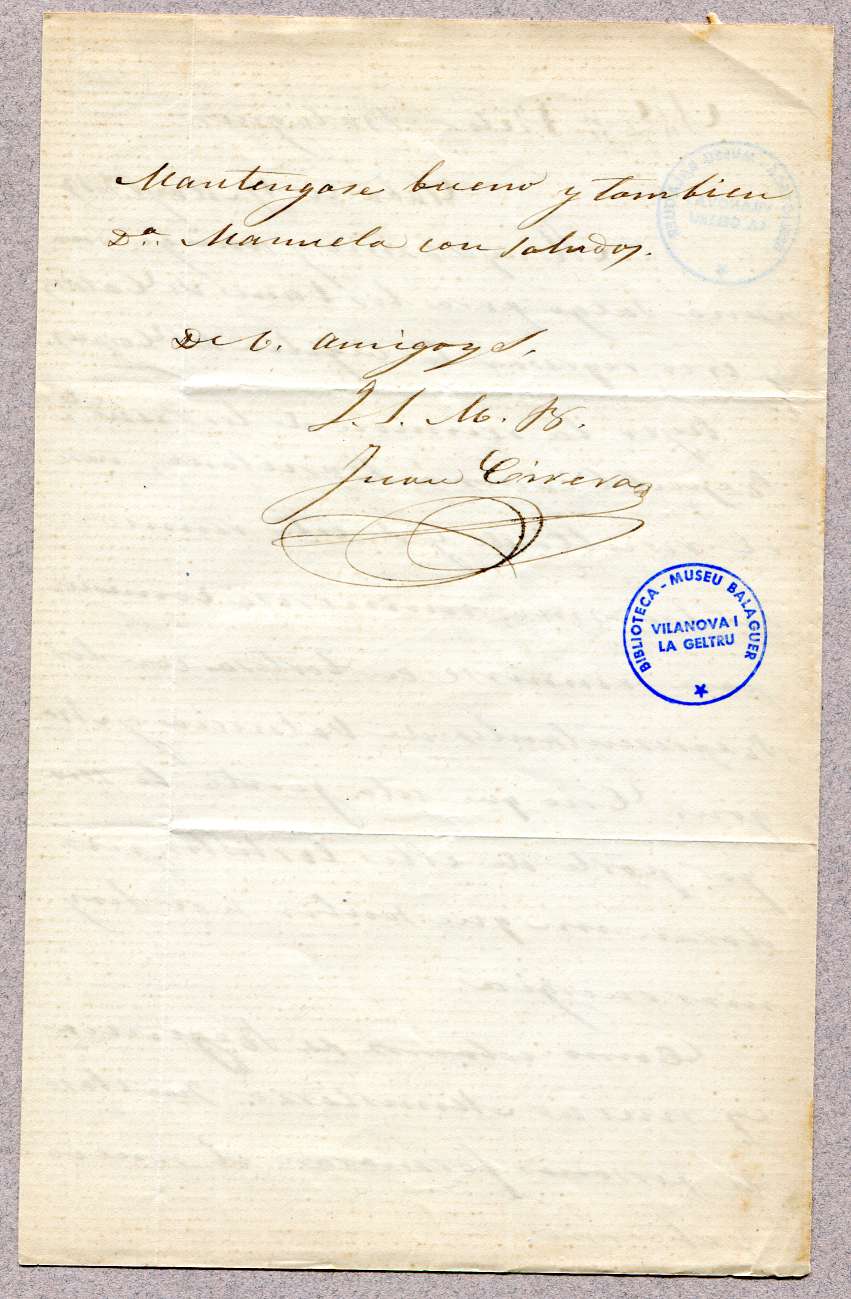 Mantengase bueno y tambien
Dª. Manuela con saludos.
De V. amigo y S.
Q. S. M. B.
Juan Cirera
BIBLIOTECA - MUSEU BALAGUER
VILANOVA I
LA GELTRU